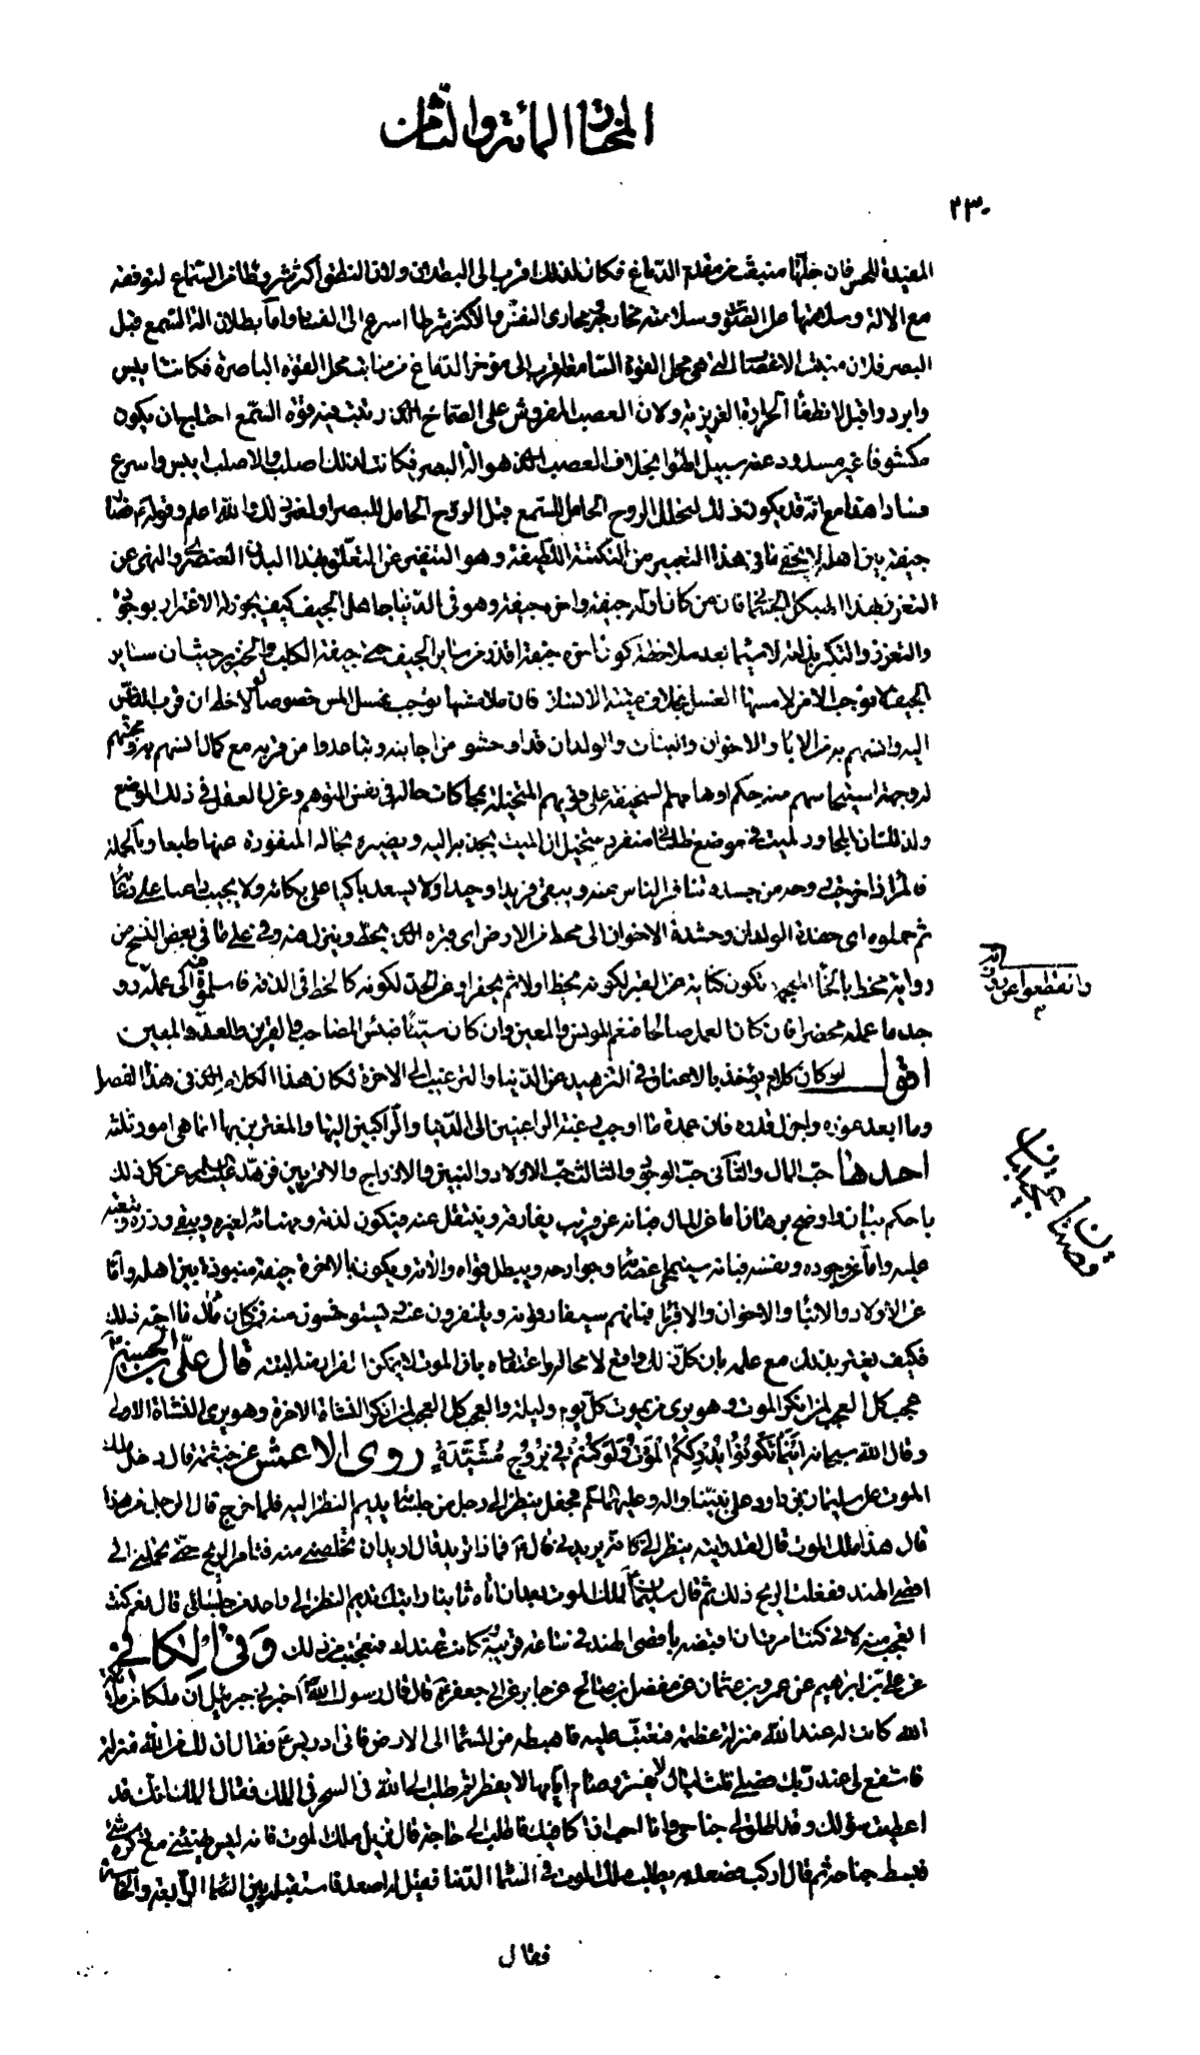 المختار المائة والثامن
٢٣٠
المفيدة للحس فان جلّها منبعث من مقدم الدماغ فكان لذلك اقرب الى البطلان ولان النطق اكثر شروطا من السماع لتوقفه
مع الآلة وسلامتها على الصوت وسلامة مخارجه ومجارى النفس والاكثر شرطا اسرع الى الفساد واما بطلان آلة السمع قبل
البصر فلان منبت الاعصاب التى هى محل القوة السامعة اقرب الى مؤخر الدماغ من منابت محل القوة الباصرة فكانت ايبس
وابرد واقبل لانطفاء الحرارة الغريزية ولان العصب المفروش على الصماخ الذى رتبت فيه قوة السمع احتاج ان يكون
مكشوفا غير مسدود عنه سبيل الهواء بخلاف العصب الذى هو آلة البصر فكانت لذلك اصلب والاصلب ايبس واسرع
فسادا هذا مع انّه قد يكون ذلك لتحلل الروح الحامل للسمع قبل الروح الحامل للبصر او لغير ذلك والله اعلم وقوله ع فصار
جيفة بين اهله لا يخفى ما فى هذا التعبير من النكتة اللطيفة وهو التنفير عن التعلّق بهذا البدن العنصرى والنهى عن
التعزز بهذا الهيكل الجسمانى فان من كان اوله جيفة واخره جيفة وهو فى الدنيا حامل الجيف كيف يجوز له الاغترار بوجوده
والتعزز والتكبر بذاته لا سيما بعد ملاحظة كونه جيفة اقذر من سائر الجيف حتى جيفة الكلب والخنزير حيث ان سائر
الجيف لا توجب الامر لامسها الغسل بخلاف ميتة الانسان فان ملامستها يوجب غسل المس خصوصا لاخله ان اقرب الناس
اليه وآنسهم به من الاباء والاخوان والبنات والولدان قد اوحشوا من جانبه وتباعدوا من قربه مع كمال انسهم به ومحبتهم
له وجهة استيحاشهم منه حكم اوهامهم السخيفة على قويهم المتخيلة بمحاكات حاله فى نفس المتوهم وعزل العقل فى ذلك الموضع
ولذلك ان المجاور لميت فى موضع ظلمانى منفرد يتخيل ان الميت يجذبه اليه ويصيره بحاله المنفورة عنها طبعا وبالجملة
فالمرء اذا خرج روحه من جسده تنافر الناس عنه ويبقى فريدا وحيدا ولا يسعد باكيا على بكائه ولا يجيب داعيا على دعائه
ثم حملوه اى حفدة الولدان وحشدة الاخوان الى محط من الارض اى قبره الذى يحط وينزل فيه وفى على ما فى بعض النسخ من
رواية مخط بالخاء المعجمة يكون كناية عن القبر لكونه يخط اولا ثم يحفر او عن اللحد لكونه كالخط فى الدقة فاسلموه فيه الى عمله و
جد ما عمله محضرا فان كان العمل صالحا فنعم المونس والمعين وان كان سيّئا فبئس المصاحب والقرين والعدو والمهين
اقول لو كان كلام يؤخذ بالاعناق فى التزهيد عن الدنيا والترغيب الى الاخرة لكان هذا الكلام الذى فى هذا الفصل
وما ابعد غوره واجزل قدره فان عمدة ما اوجب رغبة الراغبين الى الدنيا والراكبين اليها والمغترين بها انما هى امور ثلثة
احدها حبّ المال والثانى حبّ الوجود والثالث حبّ الاولاد والبنين والازواج والاقربين فزهّد عليه السلم عن كل ذلك
باحكم بيان واوضح برهان اما عن المال فبانه عن قريب يفارقه وينتقل عنه فيكون لذته ومهنائه لغيره ويبقى وزره وتبعته
عليه واما عن وجوده ونفسه فبانه سيفنى اعضائه وجوارحه ويبطل قواه وآلاته ويكون بالاخرة جيفة منبوذة بين اهله واما
عن الاولاد والابناء والاخوان والاقرباء فبانهم سيفارقونه ويتنفرون عنه ويستوحشون منه فمن كان مآل ما احبه ذلك
فكيف يغتر بذلك مع علمه بان كل ذلك واقع لا محالة واعتقاده بان الموت لا يمكن الفرار منه البتة قال علىّ بن الحسين ع
عجب كل العجب لمن انكر الموت وهو يرى من يموت كل يوم وليلة والعجب كل العجب لمن انكر النشاة الاخرة وهو يرى النشاة الاولى
وقال الله سبحانه اَيْنَما تَكُونُوا يُدْرِكْكُمُ الْمَوْتُ وَلَوْ كُنْتُمْ فِي بُرُوجٍ مُشَيَّدَةٍ روى الاعمش عن خيثمة قال دخل ملك
الموت على سليمان بن داود على نبيّنا وآله وعليهما السلم فجعل ينظر الى رجل من جلسائه يديم النظر اليه فلما خرج قال الرجل من هذا
قال هذا ملك الموت قال لقد رايته ينظر الى كانه يريدنى قال فماذا تريد قال اريد ان تخلصنى منه فتامر الريح حتى تحملنى الى
اقصى الهند ففعلت الريح ذلك ثم قال سليمان لملك الموت بعد ان اتاه ثانيا رايتك تديم النظر الى واحد من جلسائى قال نعم كنت
اتعجب منه لانى كنت امرت ان اقبضه باقصى الهند فى ساعة قريبة وكان عندك فتعجبت من ذلك وَفِى الكافى
عن على بن ابراهيم عن عمرو بن عثمان عن مفضل بن صالح عن جابر عن ابى جعفر ع قال قال رسول الله ص اخبرنى جبرئيل ان ملكا من ملائكة
الله كانت له عند الله منزلة عظيمة فتعتب عليه فاهبطه من السماء الى الارض فاتى ادريس ع فقال ان لك من الله منزلة
فاشفع لى عند ربّك فصلى ثلث ليال لا يفتر وصام ايامها لا يفطر ثم طلب الى الله فى السحر فى الملك فقال الملك انك قد
اعطيت سؤلك وقد اطلق لى جناحى وانا احب ان اكافيك فاطلب الى حاجة قال ترينى ملك الموت فانه ليس يهنئنى مع ذكره شىء
فبسط جناحه ثم قال اركب فصعد به يطلب ملك الموت فى السماء الدنيا فقيل له اصعد فاستقبله بين السماء الرابعة والخامسة
فقال
وانقطعوا عن زورته